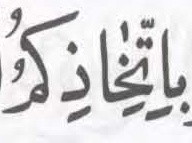 بِاتِّخَاذِكُمُ